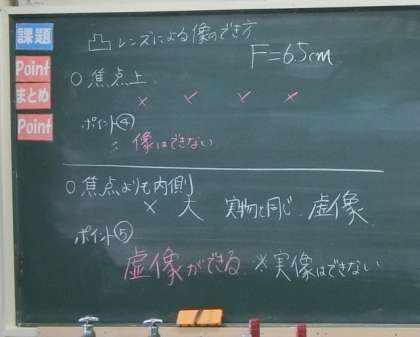 課題
凸レンズによる像のでき方
F=6.5cm
Point
○焦点上
まとめ
× × × ×
Point
ポイント④
※ 像はできない
○焦点よりも内側
× 大 実物と同じ 虚像
ポイント⑤
虚像ができる ※実像はできない